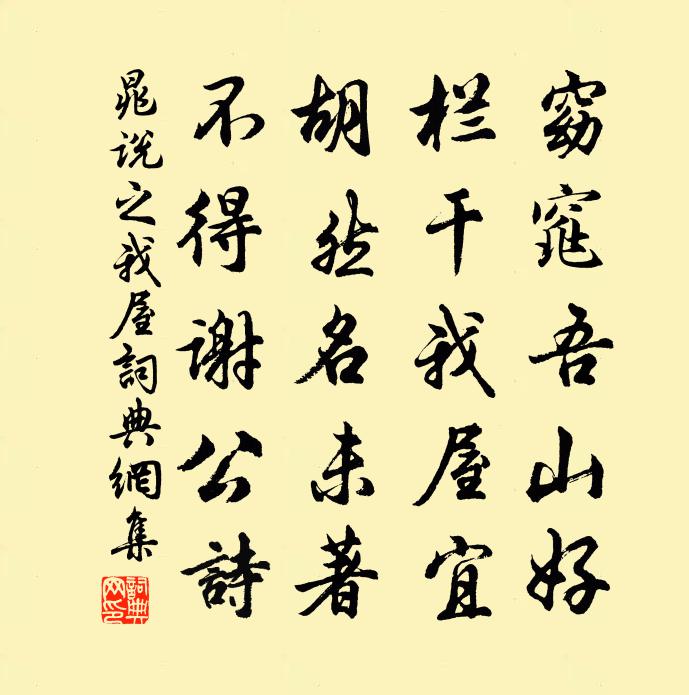 窈窕吾山好
栏干我屋宜
胡然名未著
不得谢公詩
晁说之我屋詞典網集
詞典网印